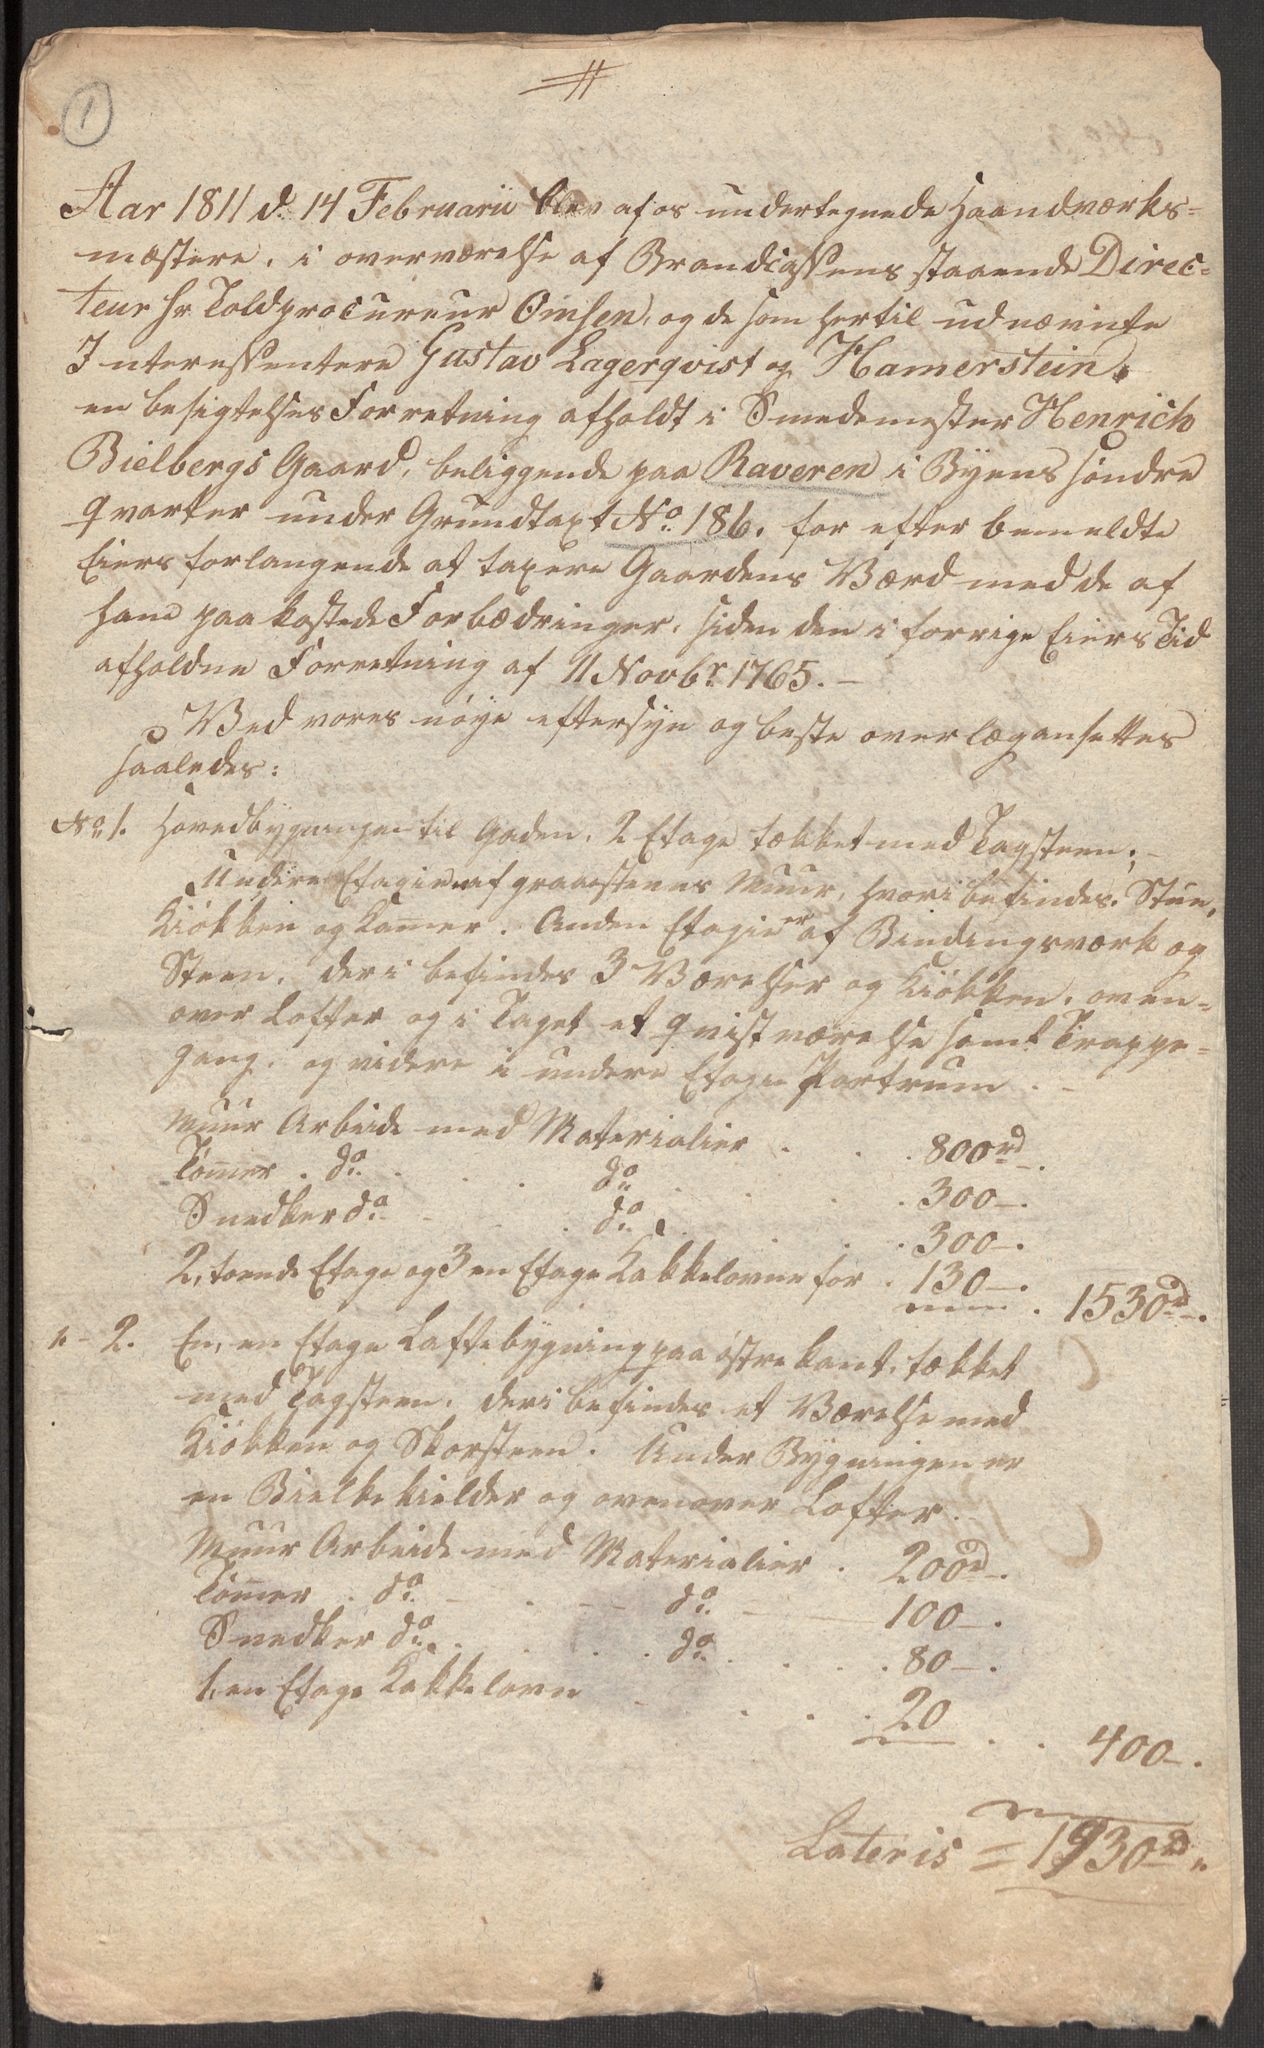 1
Aar 1811 d. 14 Februarii blev af os undertegnede Haandværks-
mæstere, i overværelse af Brandcassens staaende Direc-
teur Hr Toldprocureur Omsen, og de som hertil udnævnte
Interessentere Gustav Lagerqvist og Hamerstein,
en besigtelses Forretning afholdt i Smedemester Henrich
Bielbergs Gaard, beliggende paa Raveren i Byens søndre
Qvarter under Grundtaxt No. 186, for efter bemeldte
Eiers forlangende at taxere Gaardens Værd med de af
ham paa kostede Forbædringer, siden den i forrige Eiers Tid
afholdne Forretning af 11 Novbr. 1765.-
Ved vores nøye eftersyn og beste overlæg ansettes
saaledes:
No. 1. Hovedbygningen til Gaden, 2 Etage tækket med Tagsteen;-
Undere Etagie af graaesteens Muur, hvori befindes. Stue,
Kiøkken og Kamer. Anden Etagie er af Bindingsværk og
Steen, deri befindes 3 Værelser og Kiøkken, oven-
over Lofter og i Taget et qvistværelse samt Trappe-
gang, og videre i undere Etagie Portrum.-
Muur Arbeide med Materialier . . . 800rd-.
Tømer . do. . . . do . . . 300-.
Snedker do. - - . do. . . . 300-.
2, toende Etage og 3 en Etage Kakkelovne for . 130-. . 1530rd-.
" - 2. En, en Etage Laftebygning paa østre kant, tækket
med Tagsteen, deri befindes et Værelse med
Kiøkken og Skorsteen. Under Bygningen er
en Bielkekielder og ovenover Lofter.
Muur Arbeide med Materialier . 200rd-.
Tømer . do. - . - - do. - - 100-.
Snedker do. . . . . do. . . . . 80-.
1, en Etage Kakkelovn - . . . 20 . . 400-.
Lateris = 1930rd.